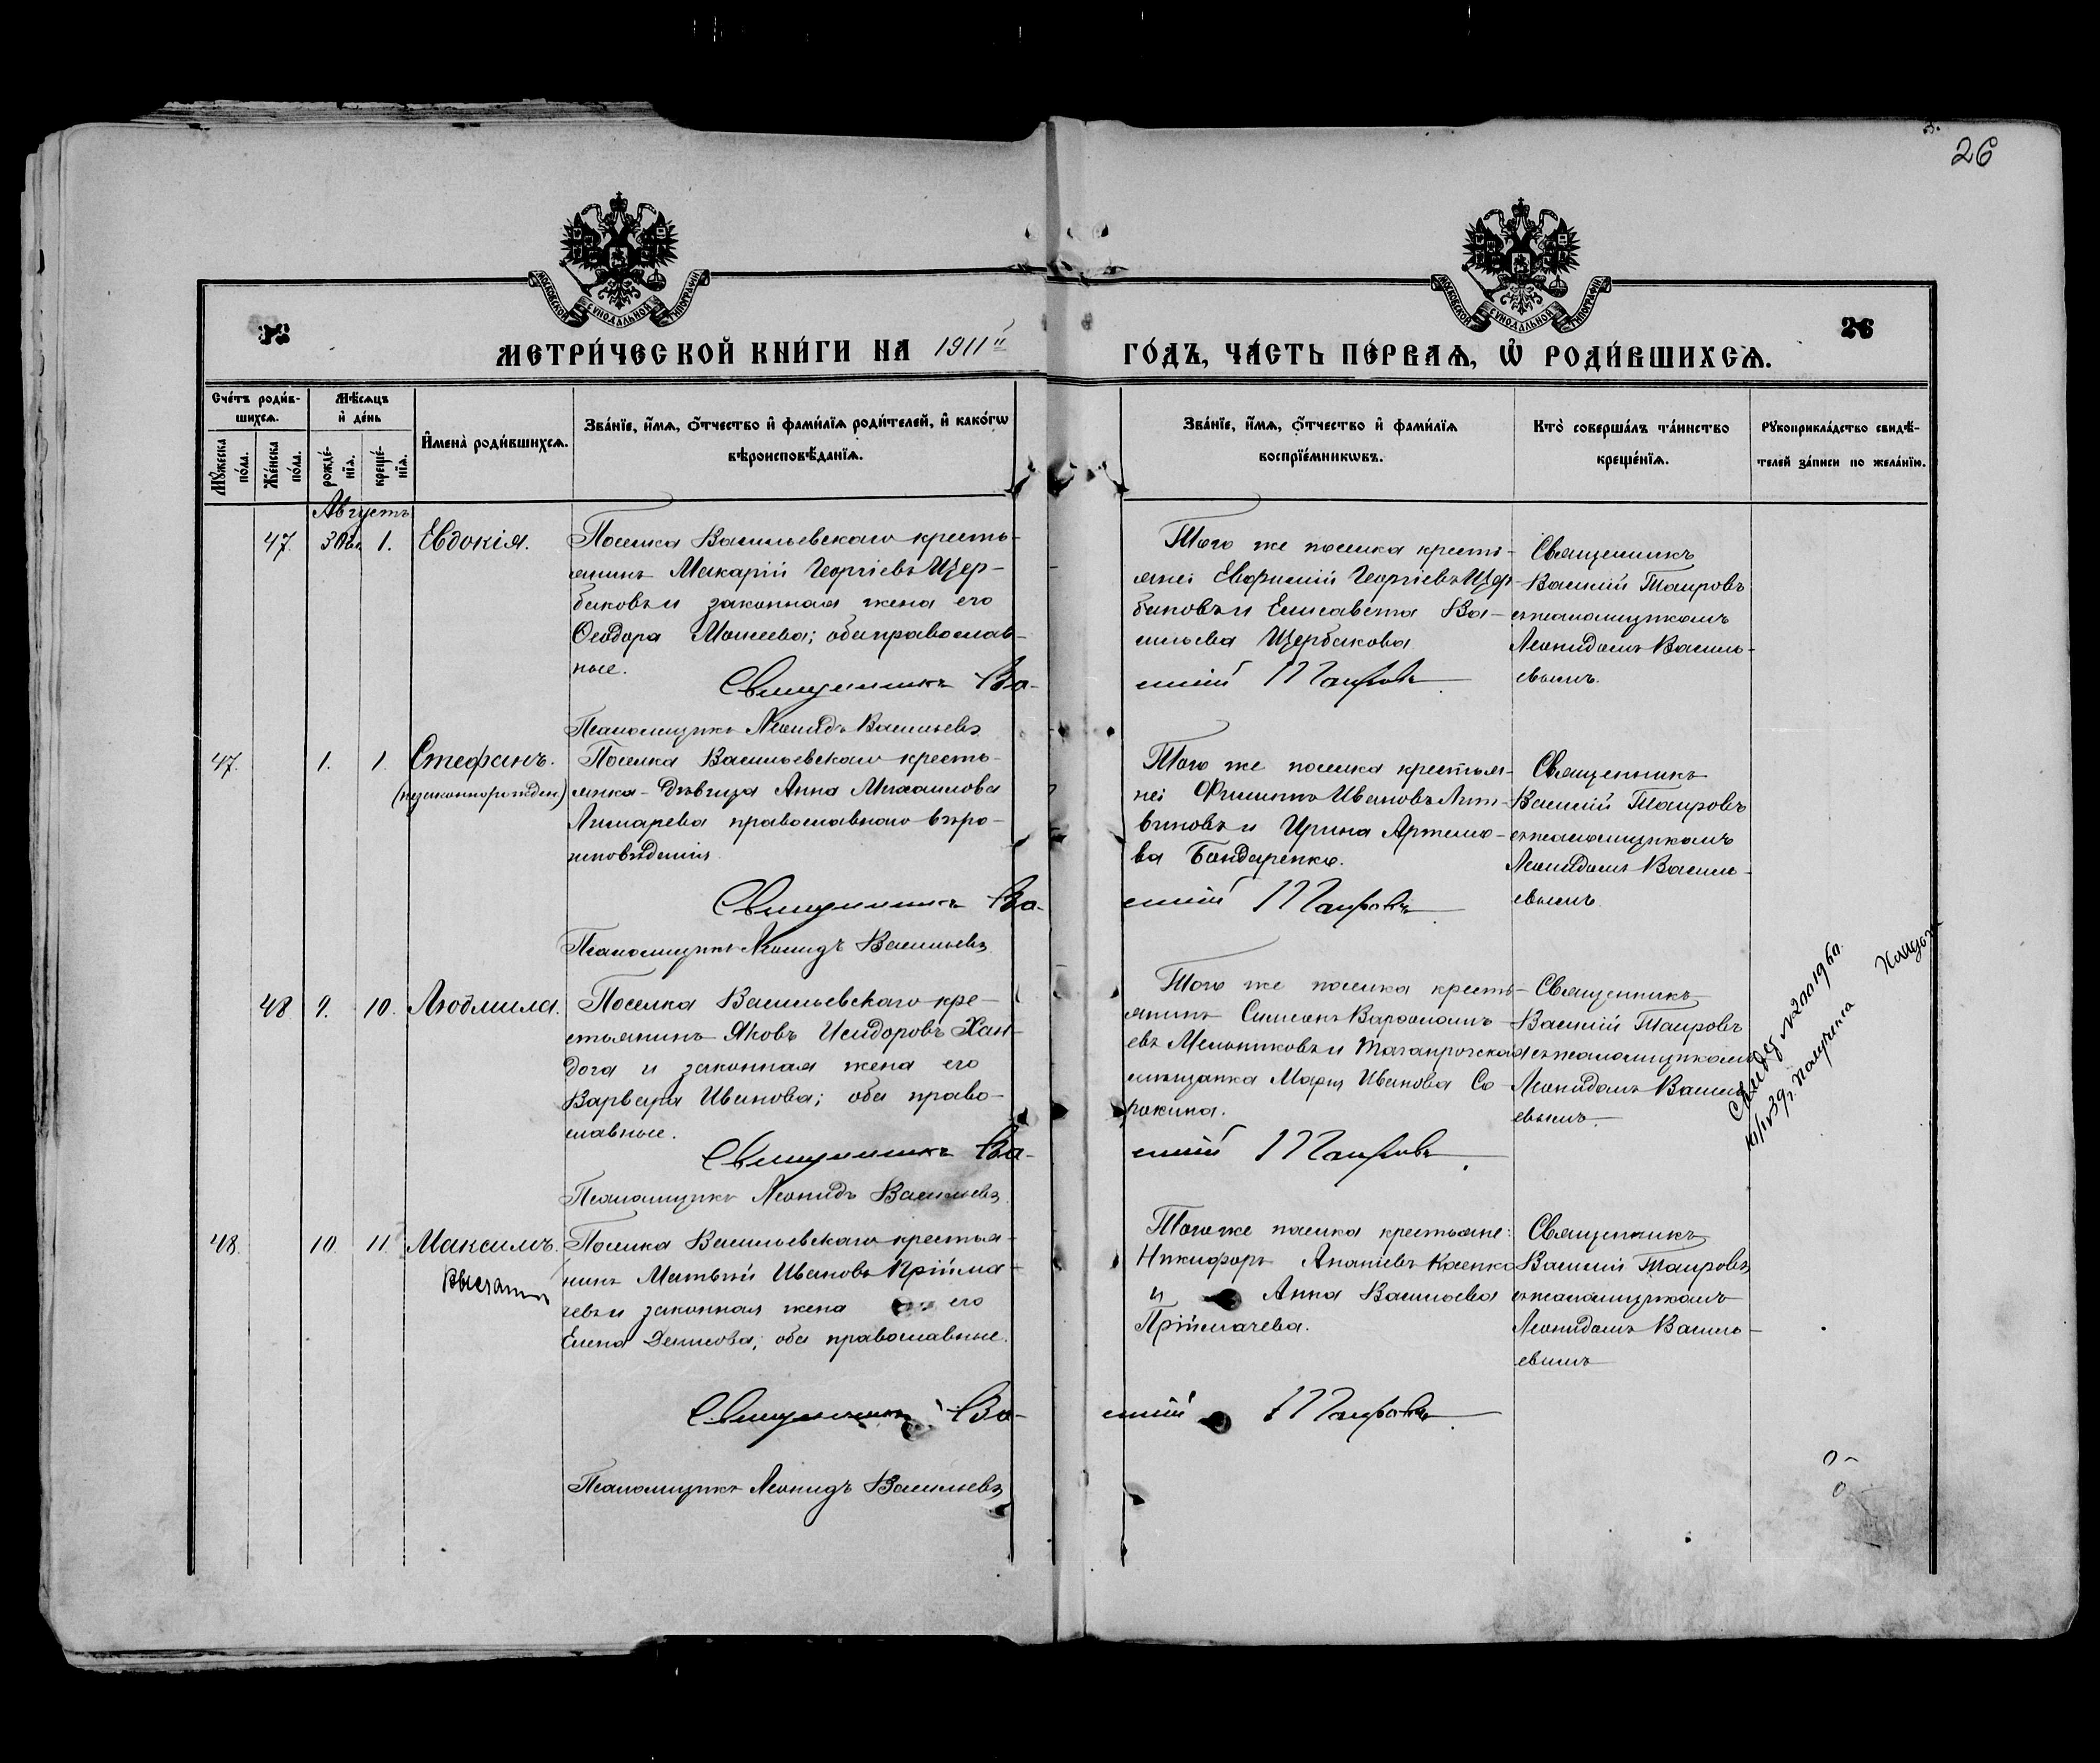 26
МОСКОВСКОЙ СѴНОДАЛЬНОЙ ТИПОГРАФІИ
МОСКОВСКОЙ СѴНОДАЛЬНОЙ ТИПОГРАФІИ
26
МЕТРИ́ЧЕСКОЙ КНИ́ГИ НА 1911й
ГО́ДЪ, ЧА́СТЬ ПЕ́РВАѦ, Ѡ҆ РОДИ́ВШИХСѦ.
Сче́тъ роди́в-
шихсѧ.
Мꙋ́жеска по́ла.
Же́нска по́ла.
Мѣ́сѧцъ
и҆ де́нь
рожде́-
нїѧ.
креще́-
нїѧ.
И҆мена̀ роди́вшихсѧ.
Зва́нїе, и҆́мѧ, ѻ҆́тчество и҆ фами́лїѧ роди́телей, и҆ како́гѡ
вѣроисповѣ́данїѧ.
Зва́нїе, и҆́мѧ, ѻ҆́тчество и҆ фами́лїѧ
воспрїе́мникѡвъ.
Кто̀ соверша́лъ та́инство
креще́нїѧ.
Рꙋкоприкла́дство свидѣ́-
телей за́писи по жела́нїю.
Августъ
47. 1. Евдокія.
Поселка Васильевскаго кресть-
янинъ Макарій Георгіевъ Щер-
баковъ и законная жена его
Ѳеодора Моисеева; оба православ-
ные.
Священникъ Ва-
Псаломщикъ Леонидъ Васильевъ
Того же поселка кресть-
яне: Евфимій Георгіевъ Щер-
баковъ и Елисавета Ва-
сильева Щербакова.
силій Таировъ
Священникъ
Василій Таировъ
съ псаломщикомъ
Леонидомъ Василь-
евымъ.
47. 1. 1. Стефанъ.
(незаконнорожден)
Поселка Васильевскаго кресть-
янка-дѣвица Анна Михаилова
Лимарева православнаго вѣро-
исповѣданія.
Священникъ Ва-
Псаломщикъ Леонидъ Васильевъ
Того же поселка крестья-
не: Филиппъ Ивановъ Лит-
виновъ и Ирина Артемо-
ва Бондаренко.
силій Таировъ
Священникъ
Василій Таировъ
съ псаломщикомъ
Леонидомъ Василь-
евымъ.
48 9. 10. Людмила.
Поселка Васильевскаго кре-
стьянинъ Яковъ Исидоровъ Хан-
дога и законная жена его
Варвара Иванова; оба право-
славные.
Священникъ Ва-
Псаломщикъ Леонидъ Васильевъ
Того же поселка кресть-
янинъ Симеонъ Варѳоломе-
евъ Мельниковъ и Таганрогская
мѣщанка Марія Иванова Со-
рокина.
силій Таировъ
Священникъ
Василій Таировъ
съ псаломщикомъ
Леонидомъ Василь-
евымъ.
получила
48. 10. 11. Максимъ.
Поселка Васильевскаго крестья-
нинъ Матвѣй Ивановъ Прійма-
чевъ и законная жена его
Елена Денисова; оба православные.
Священникъ Ва-
Псаломщикъ Леонидъ Васильевъ
Того же поселка крестьяне:
Никифоръ Ананіевъ Касенко
и Анна Васильева
Пріймачева.
силій Таировъ
Священникъ
Василій Таировъ
съ псаломщикомъ
Леонидомъ Василь-
евымъ